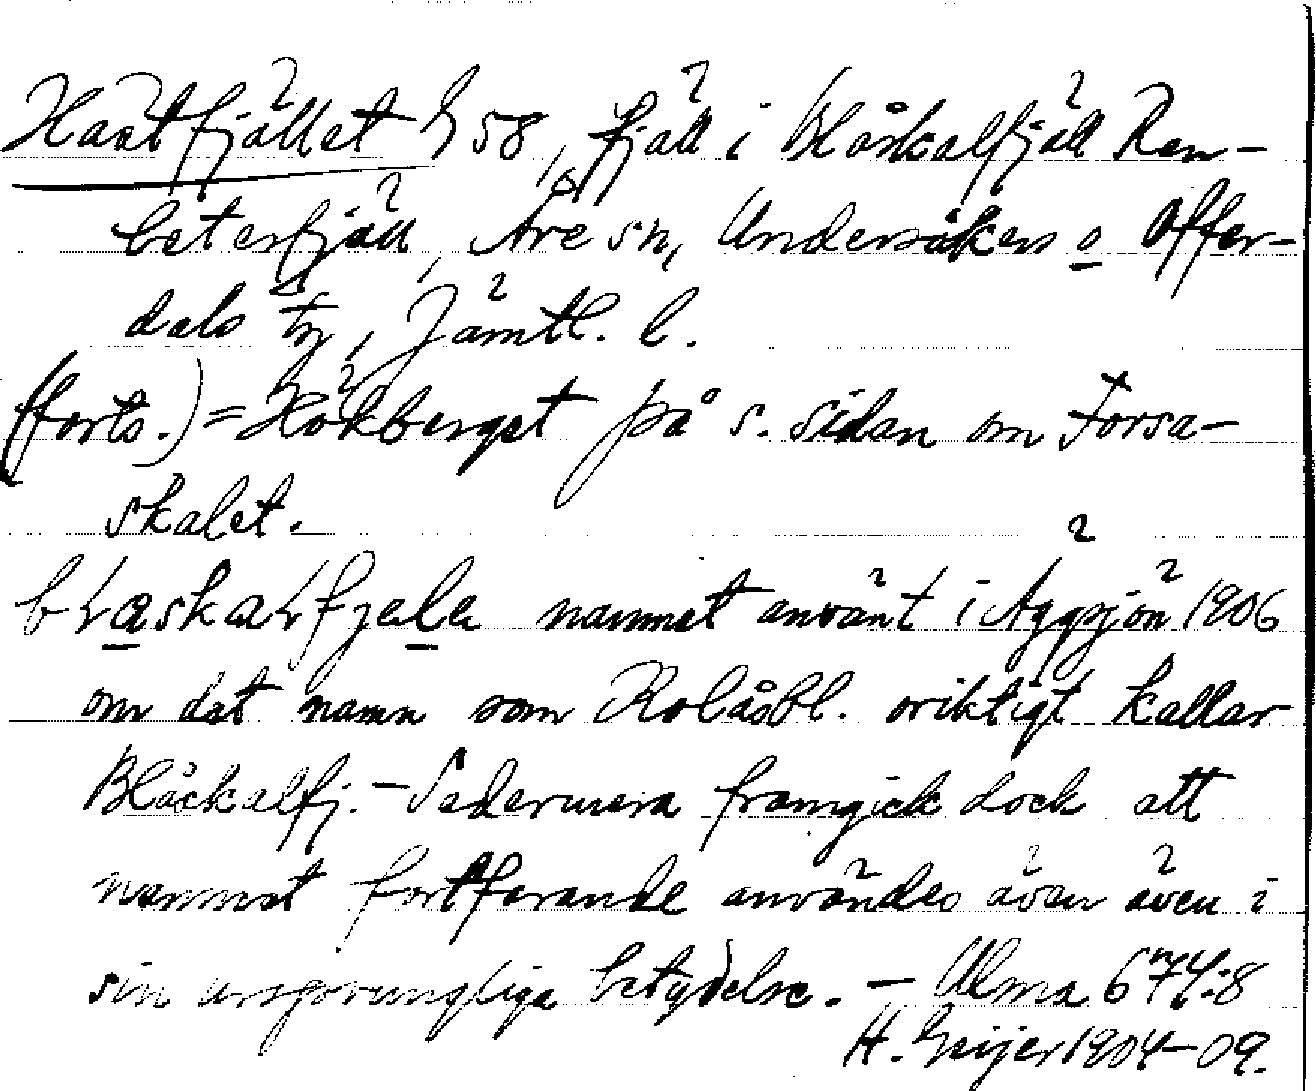 Hästfjället h 58, fjäll i Blåskalfjäll Ren-
betesfjäll, Åre sn, Undersåkers o Offer-
dals tg, Jämtl. l.
(forts.) = Hökberget på s. sidan om Forsa-
skalet.
namnet använt i Äggsjön 1906
om det namn som Rolåsbl. oriktigt kallar
Blåckalfj. – Sedermera framgick dock att
namnet fortfarande användes även även i
sin ursprungliga betydelse. – Ulma 674:8
H. Geijer 1904–09.